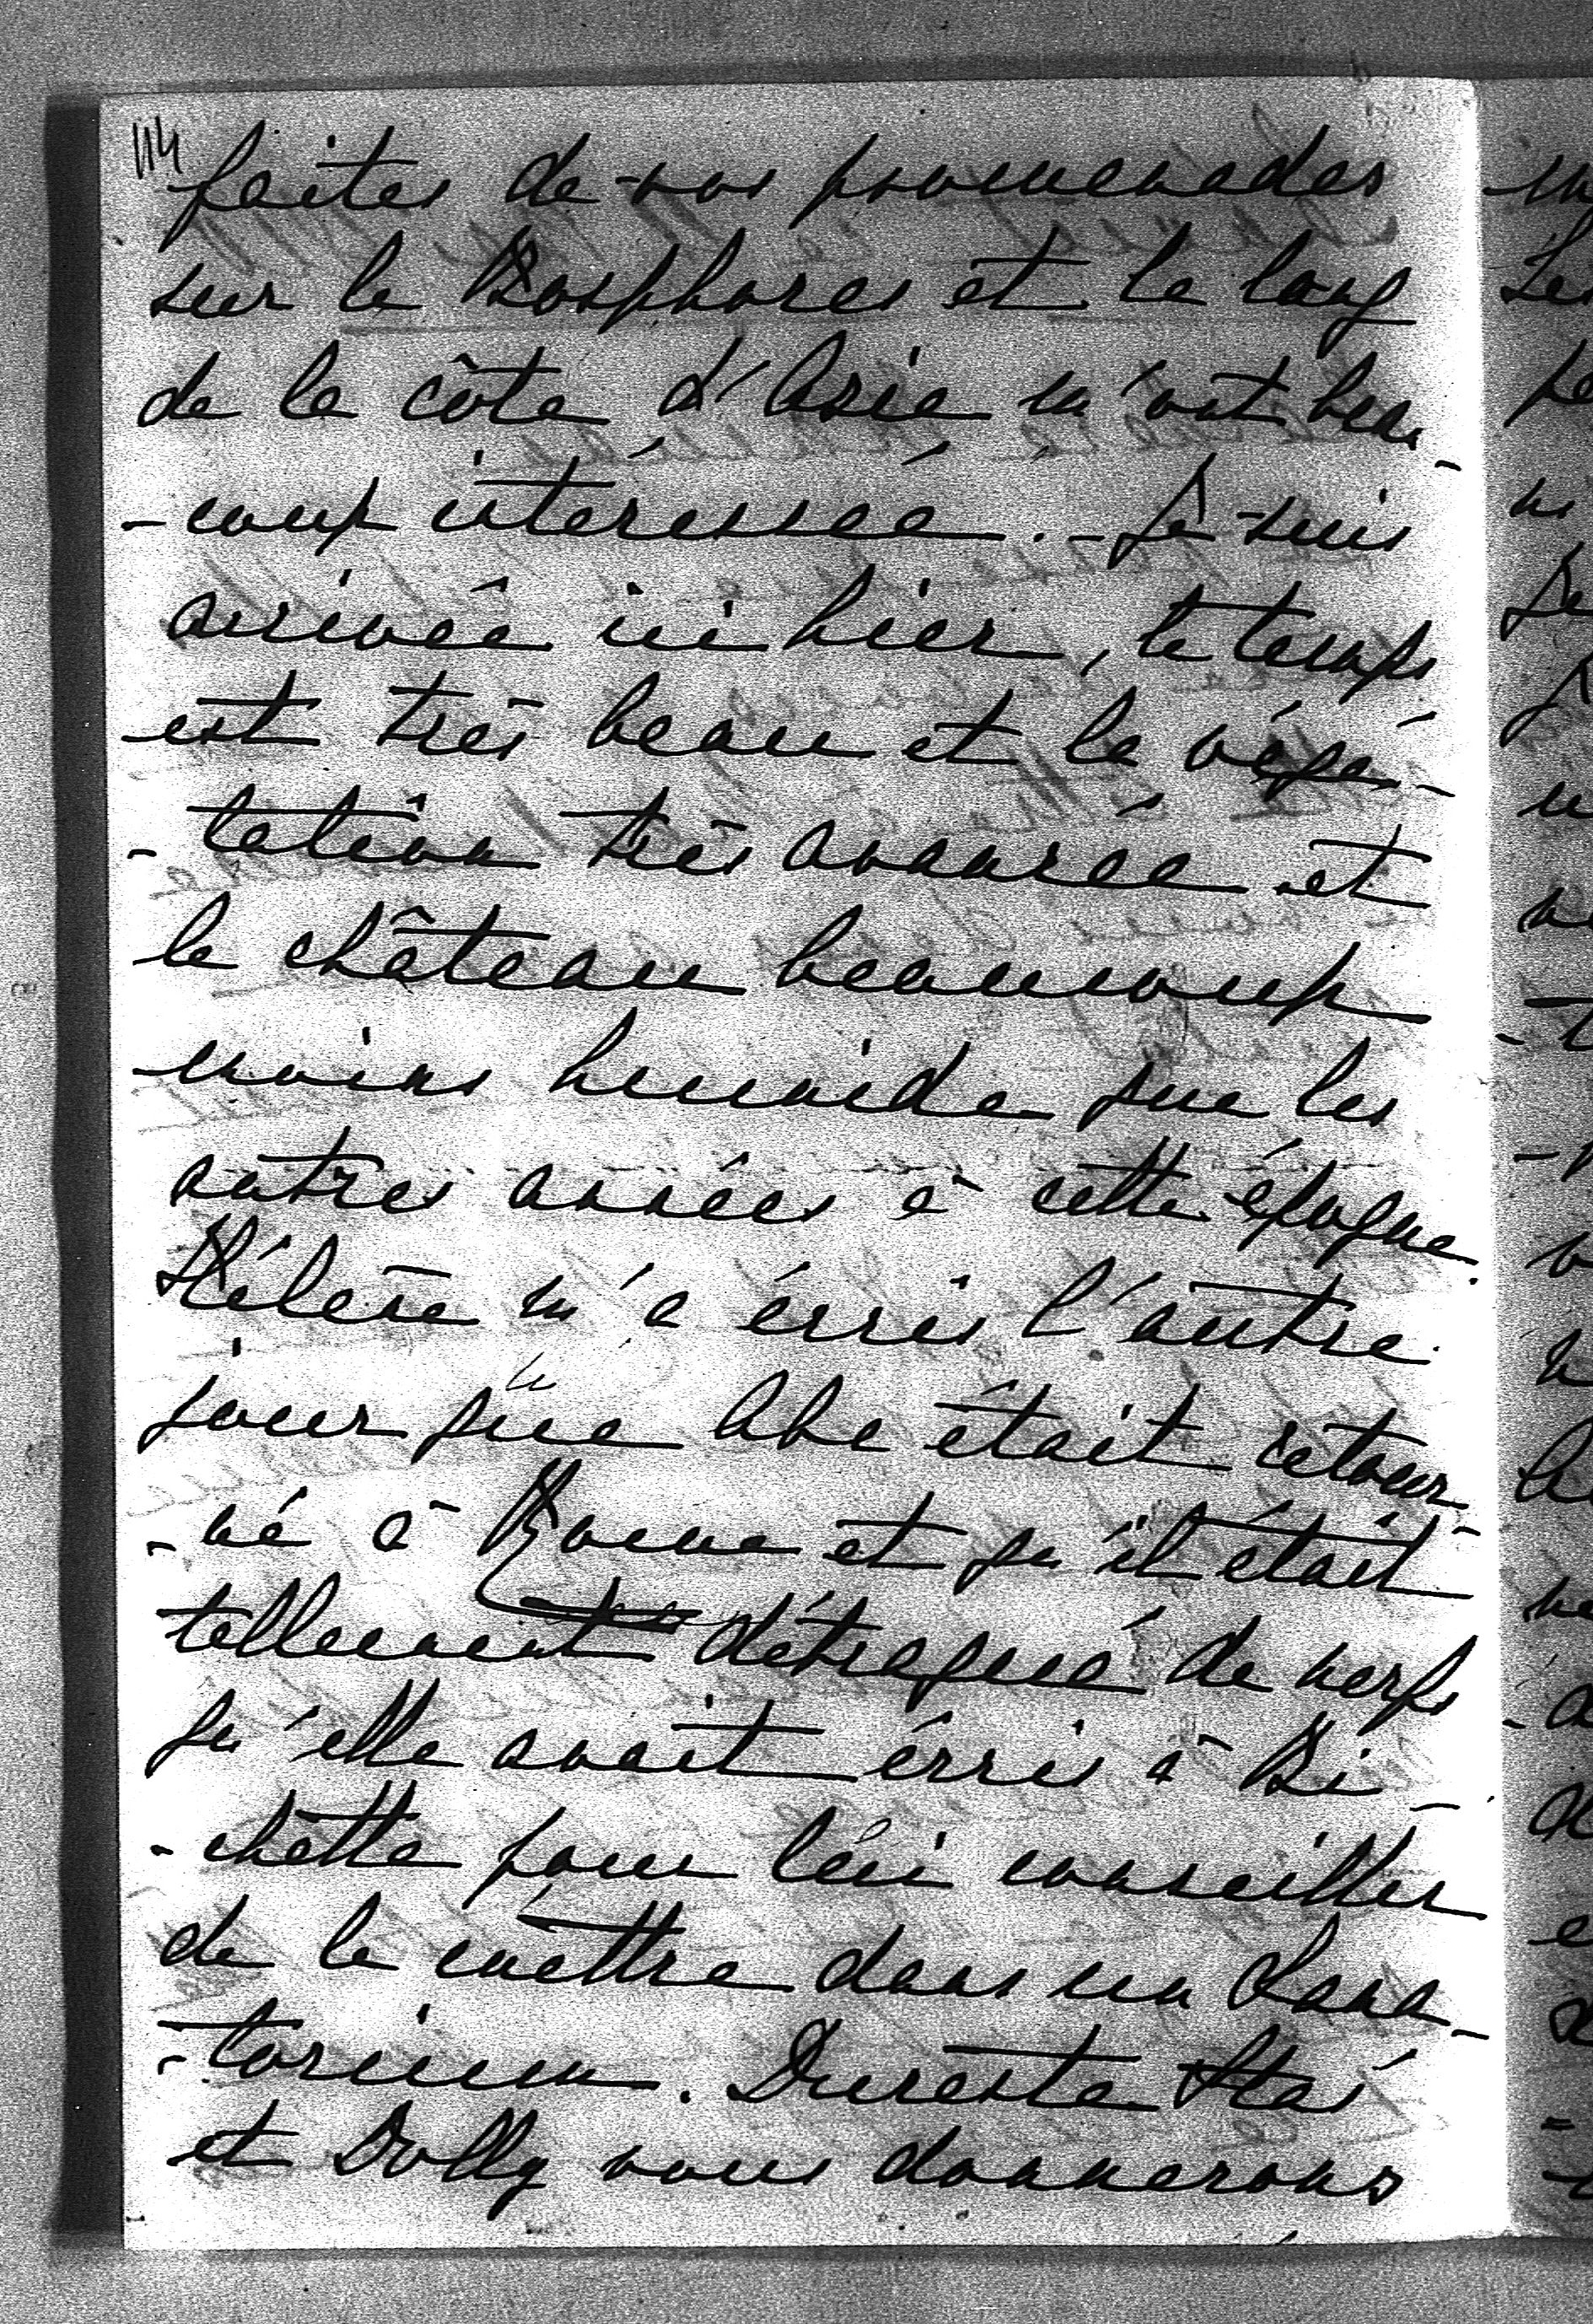 114
faites de vos promenades
sur le Bosphores et le long
de la côte d'Asie m'ont beau-
-coup intéressée. - Je suis
arrivée ici hier, le temps
est très beau et la végé-
-tation très avancée et
le château beaucoup
moins humide que les
autres années à cette époque.
Hélène m'a écris l'autre
jour que Abe était retour-
-né à Rome et qu'il était
tellement détraqué de nerfs
qu'elle avait écris à Bi-
-chette pour lui conseiller
de le mettre dans un Sana-
-torium. Dureste
et Dolly vous donnerons